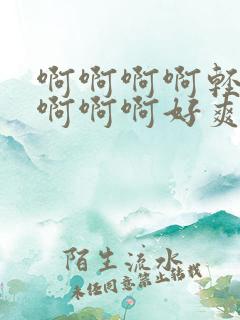 啊啊啊啊轻
啊啊啊好爽
陌生流水
未经同意禁止转载